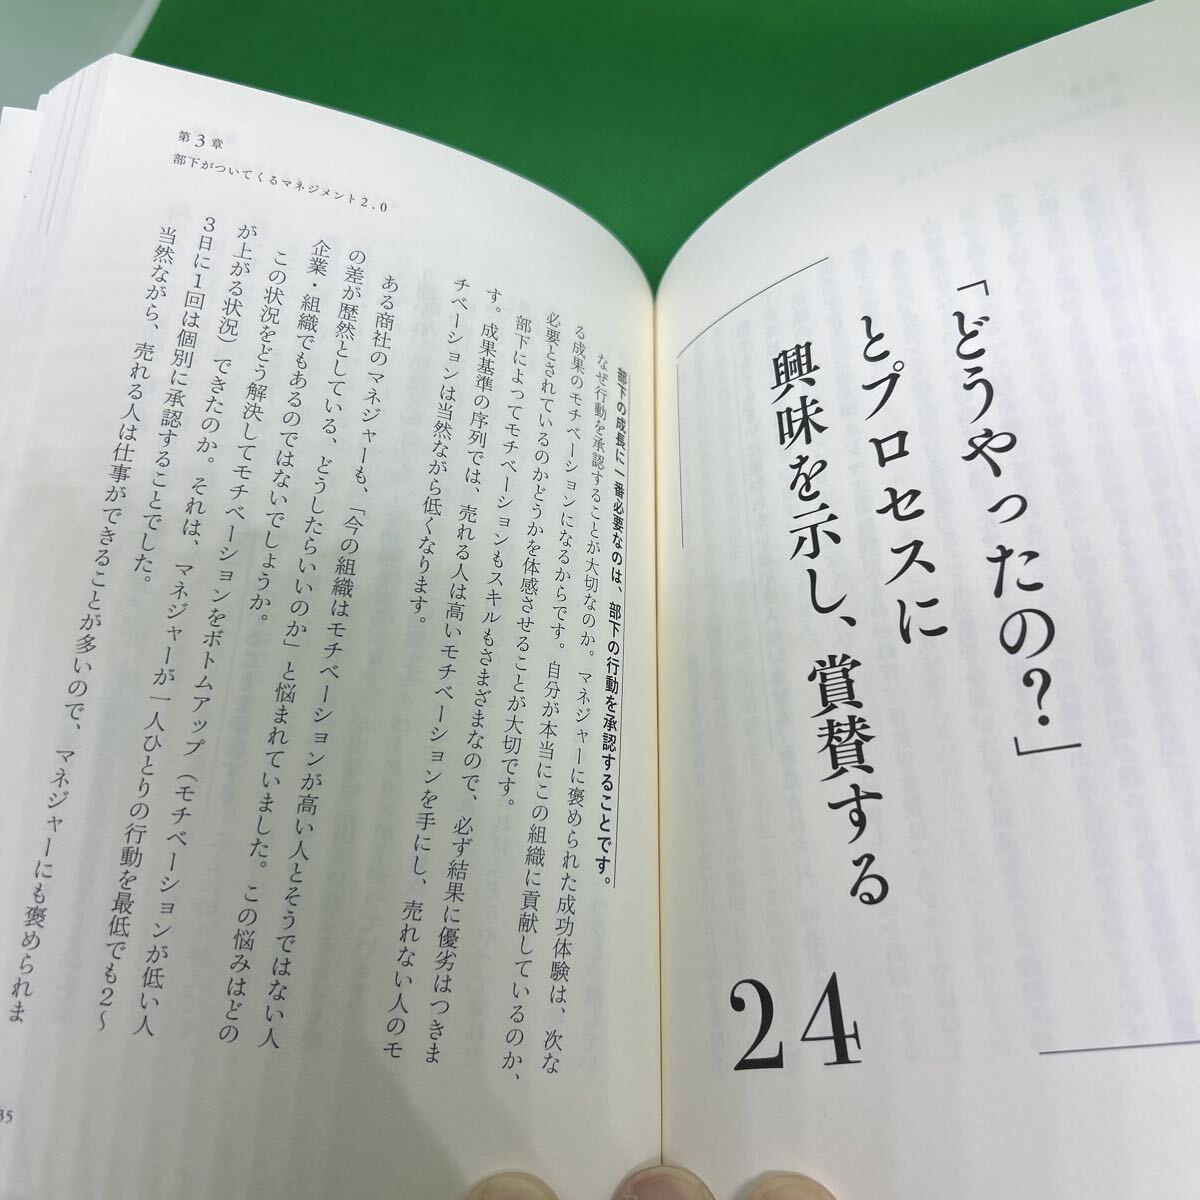 「どうやったの？」
とプロセスに
興味を示し、賞賛する
24
第3章
部下がついてくるマネジメント2.0
部下の成長に一番必要なのは、部下の行動を承認することです。
なぜ行動を承認することが大切なのか。マネジャーに褒められた成功体験は、次な
る成果のモチベーションになるからです。自分が本当にこの組織に貢献しているのか、
必要とされているのかどうかを体感させることが大切です。
部下によってモチベーションもスキルもさまざまなので、必ず結果に優劣はつきま
す。成果基準の序列では、売れる人は高いモチベーションを手にし、売れない人のモ
チベーションは当然ながら低くなります。
ある商社のマネジャーも、「今の組織はモチベーションが高い人とそうではない人
の差が歴然としている、どうしたらいいのか」と悩まれていました。この悩みはどの
企業・組織でもあるのではないでしょうか。
この状況をどう解決してモチベーションをボトムアップ（モチベーションが低い人
が上がる状況）できたのか。それは、マネジャーが一人ひとりの行動を最低でも2〜
3日に1回は個別に承認することでした。
当然ながら、売れる人は仕事ができることが多いので、マネジャーにも褒められま
35